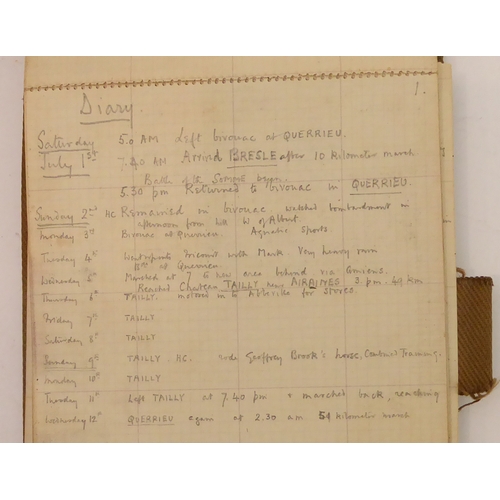 1.
Diary.
Saturday July 1st 5.0 AM Left bivouac at QUERRIEU.
7.40 AM Arrived BRESLE after 10 kilometer march
Battle of the Somme began.
5.30 pm Returned to bivouac in QUERRIEU.
Sunday 2nd HC Remained in bivouac watched bombardment in
afternoon from hill W of Albert.
Monday 3rd Bivouac at Querrieu. Aquatic Sports.
Tuesday 4th with Mark Very heavy rain
at Querrieu.
Wednesday 5th Marched at 7 to new area behind via Amiens.
Reached Chateau TAILLY near AIRAINES 3. pm. 49 Km
Thursday 6th TAILLY. motored in to Abbeville for stores.
Friday 7th TAILLY
Saturday 8th TAILLY
Sunday 9th TAILLY. HC. rode Geoffrey Brook's horse, Training.
Monday 10th TAILLY
Tuesday 11th Left TAILLY at 7.40 pm & marched back, reaching
Wednesday 12th QUERRIEU again at 2.30 am 51 kilometer march